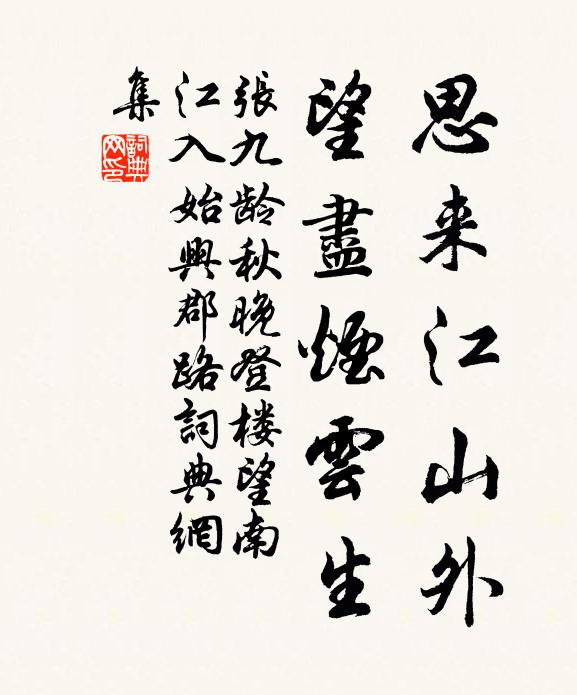 思来江山外
望盡煙雲生
張九龄秋晚登楼望南
江入始興郡路詞典網
集
詞典网印